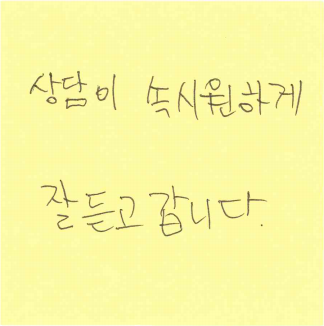 상담이 속시원하게
잘 듣고 갑니다.